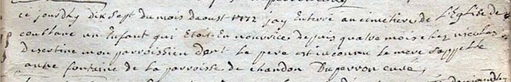 ce jourdhy dix Sept du mois daoust 1772 jay Enterré au cimetiere de L'Eglise de
un Enfant qui Etoit En nourrice depuis quatre mois chez nicolas
mon parroissien dont le pere est inconnu la mere s'appelle
fontaine de la parroisse de chandon curé